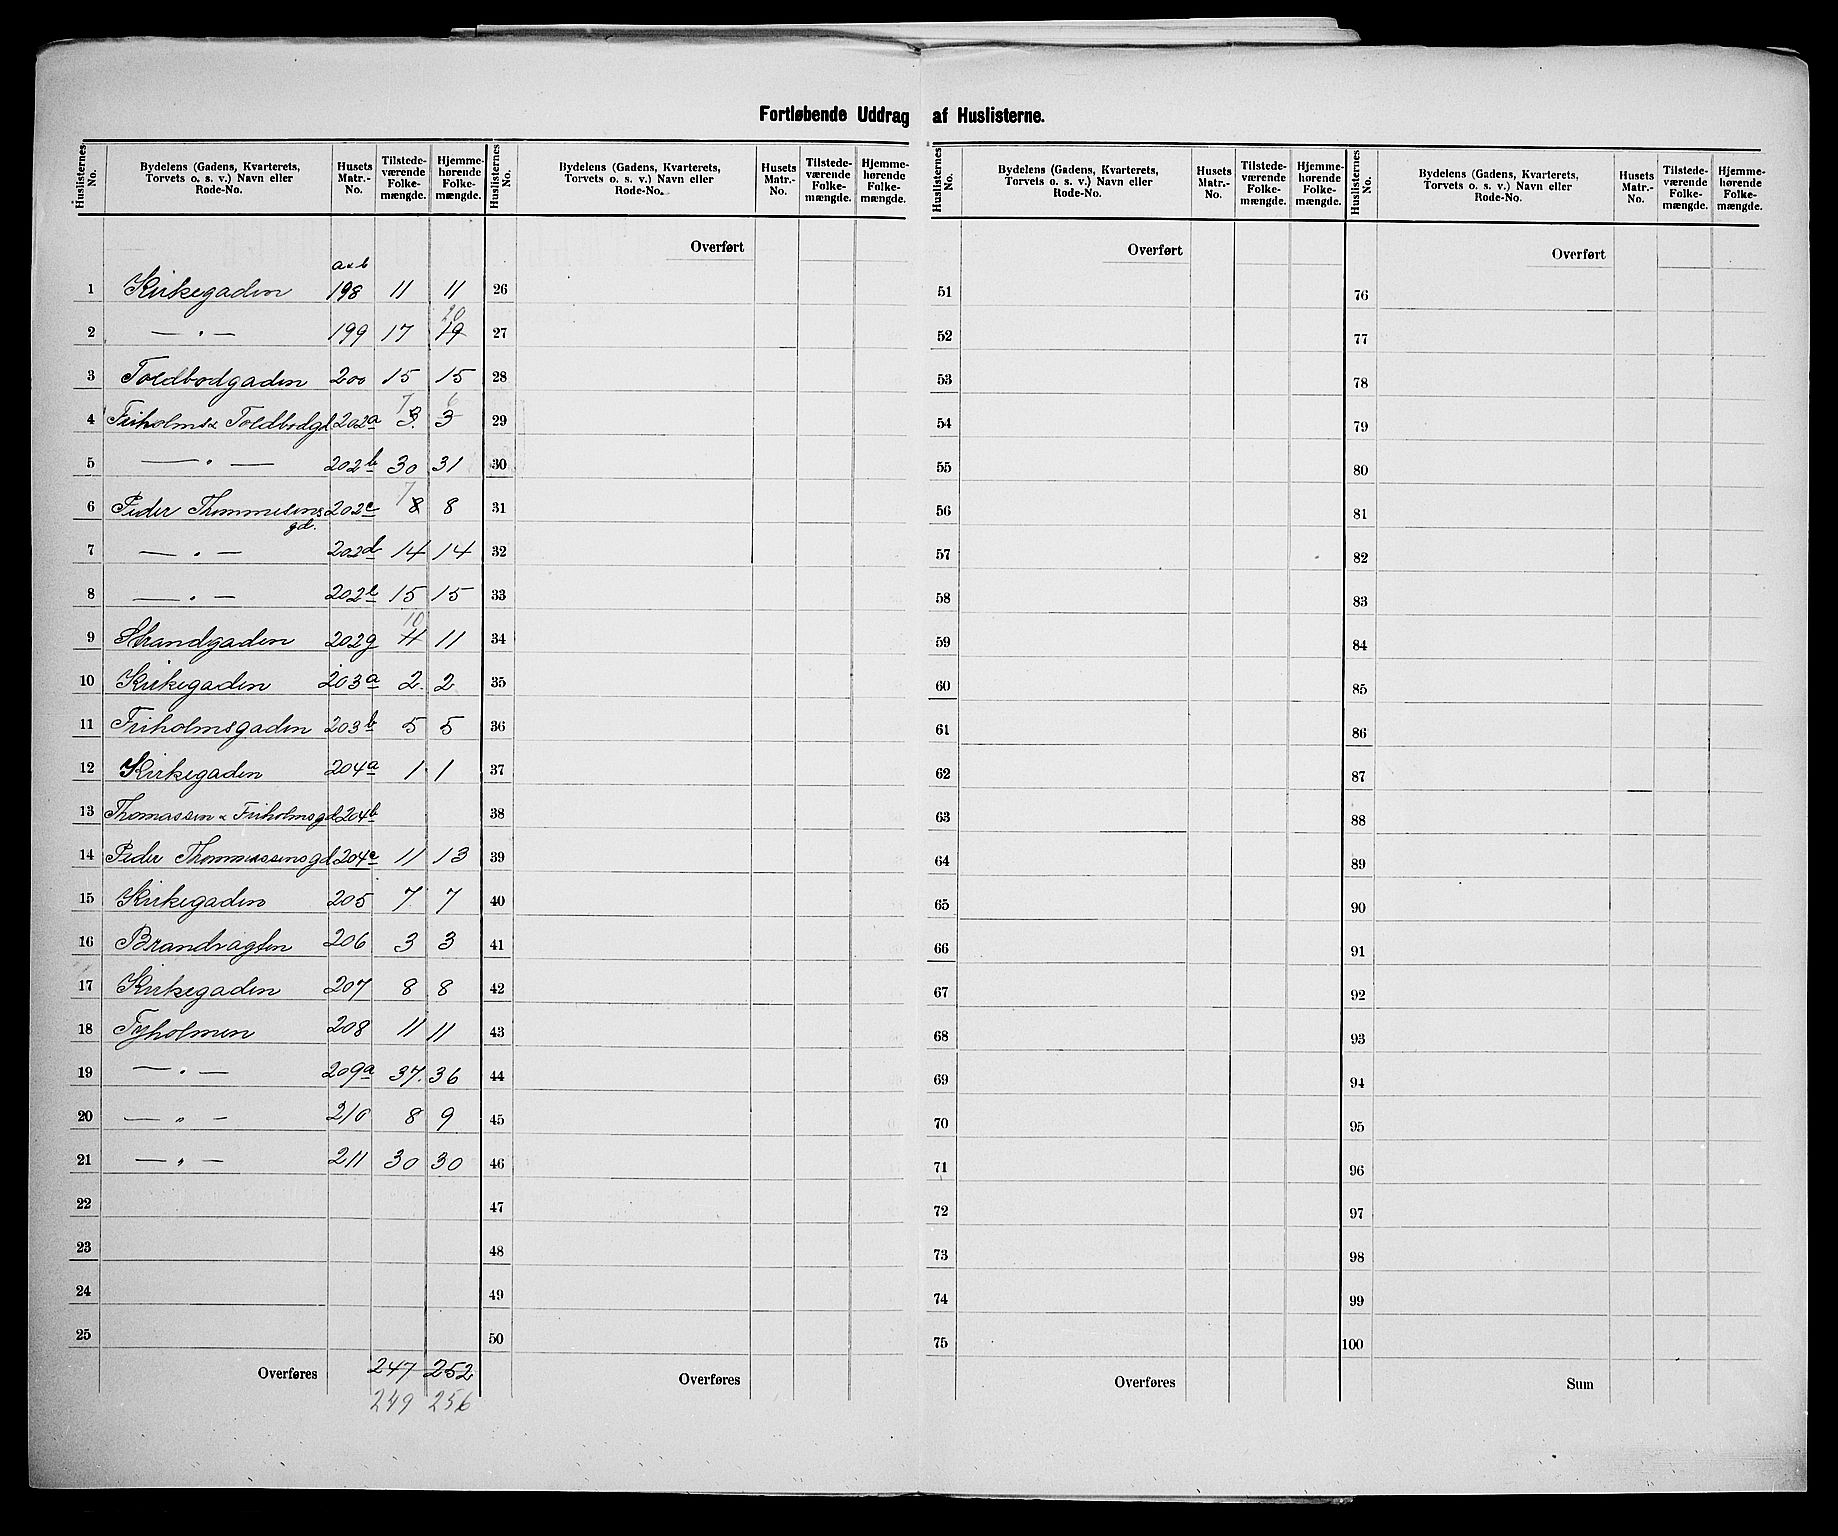 Fortløbende Uddrag af Huslisterne.
Huslisternes No. Bydelens (Gadens, Kvarterets, Torvets o. s. v.) Navn eller Rode-No. Husets Matr.-No. Tilstede-værende Folke-mængde. Hjemme-hørende Folke-mængde.
Huslisternes No. Bydelens (Gadens, Kvarterets, Torvets o. s. v.) Navn eller Rode-No. Husets Matr.-No. Tilstede-værende Folke-mængde. Hjemme-hørende Folke-mængde.
Huslisternes No. Bydelens (Gadens, Kvarterets, Torvets o. s. v.) Navn eller Rode-No. Husets Matr.-No. Tilstede-værende Folke-mængde. Hjemme-hørende Folke-mængde.
Huslisternes No. Bydelens (Gadens, Kvarterets, Torvets o. s. v.) Navn eller Rode-No. Husets Matr.-No. Tilstede-værende Folke-mængde. Hjemme-hørende Folke-mængde.
Overført Overført Overført
a & b
1 Kirkegaden 198 11 11 26 51 76
20
2 — " — 199 17 19 27 52 77
3 Toldbodgaden 200 15 15 28 53 78
7 6
4 Friholms & Toldbodgd 202a 3. 3 29 54 79
5 — " — 202b 30 31 30 55 80
7
6 Peder Thommesens gd. 202c 8 8 31 56 81
7 — " — 202d 14 14 32 57 82
8 — " — 202e 15 15 33 58 83
10
9 Strandgaden 202g 11 11 34 59 84
10 Kirkegaden 203a 2. 2 35 60 85
11 Friholmsgaden 203b 5 5 36 61 86
12 Kirkegaden 204a 1 1 37 62 87
13 Thomassen & Friholmsgd 204b 38 63 88
14 Peder Thommessensgd 204c 11 13 39 64 89
15 Kirkegaden 205 7 7 40 65 90
16 Brandvagten 206 3 3 41 66 91
17 Kirkegaden 207 8 8 42 67 92
18 Tyholmen 208 11 11 43 68 93
19 — " — 209a 37. 36 44 69 94
20 — " — 210 8 9 45 70 95
21 — " — 211 30 30 46 71 96
22 47 72 97
23 48 73 98
24 49 74 99
25 50 75 100
Overføres 247 252 Overføres Overføres Sum
249 256